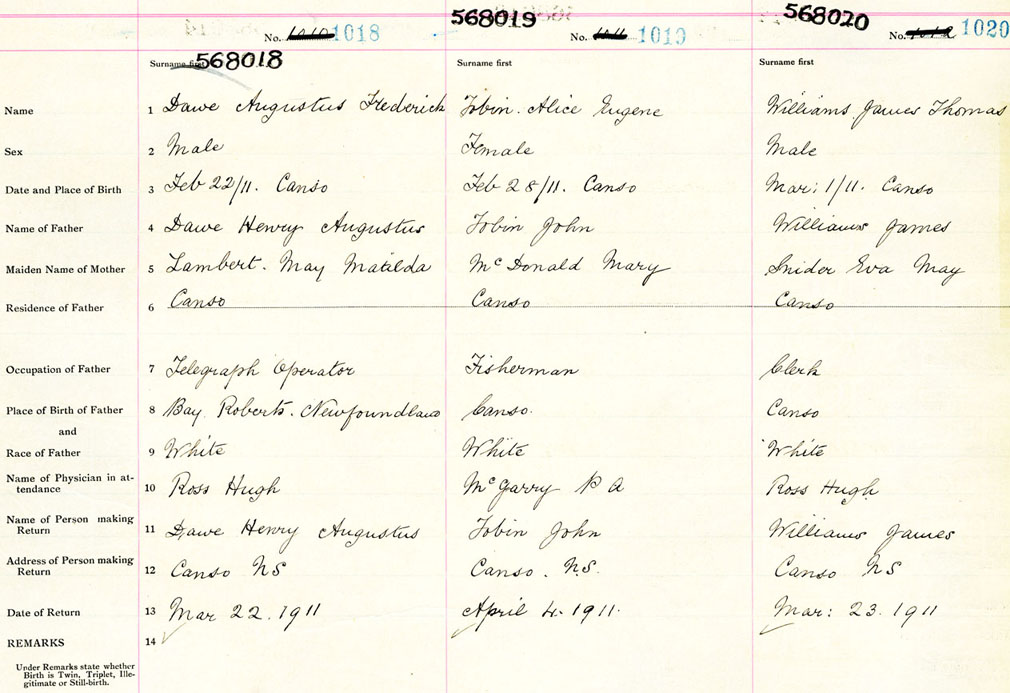 568018 568019 568020
No. 1018 No. 1019 No. 1020
Surname first Surname first Surname first
Name 1 Dawe Augustus Frederick Tobin. Alice Eugene Williams James Thomas
Sex 2 Male Female Male
Date and Place of Birth 3 Feb 22/11. Canso Feb 28/11. Canso Mar: 1/11. Canso
Name of Father 4 Dawe Henry Augustus Tobin John Williams James
Maiden Name of Mother 5 Lambert. May Matilda McDonald Mary Snider Eva May
Residence of Father 6 Canso Canso Canso
Occupation of Father 7 Telegraph Operator Fisherman Clerk
Place of Birth of Father 8 Bay Roberts. Newfoundland Canso. Canso
and
Race of Father 9 White White White
Name of Physician in at-
tendance 10 Ross Hugh McGarry P A Ross Hugh
Name of Person making
Return 11 Dawe Henry Augustus Tobin John Williams James
Address of Person making
Return 12 Canso NS Canso. N.S. Canso NS
Date of Return 13 Mar 22. 1911 April 4. 1911. Mar: 23. 1911
REMARKS 14
Under Remarks state whether
Birth is Twin, Triplet, Ille-
gitimate or Still-birth.